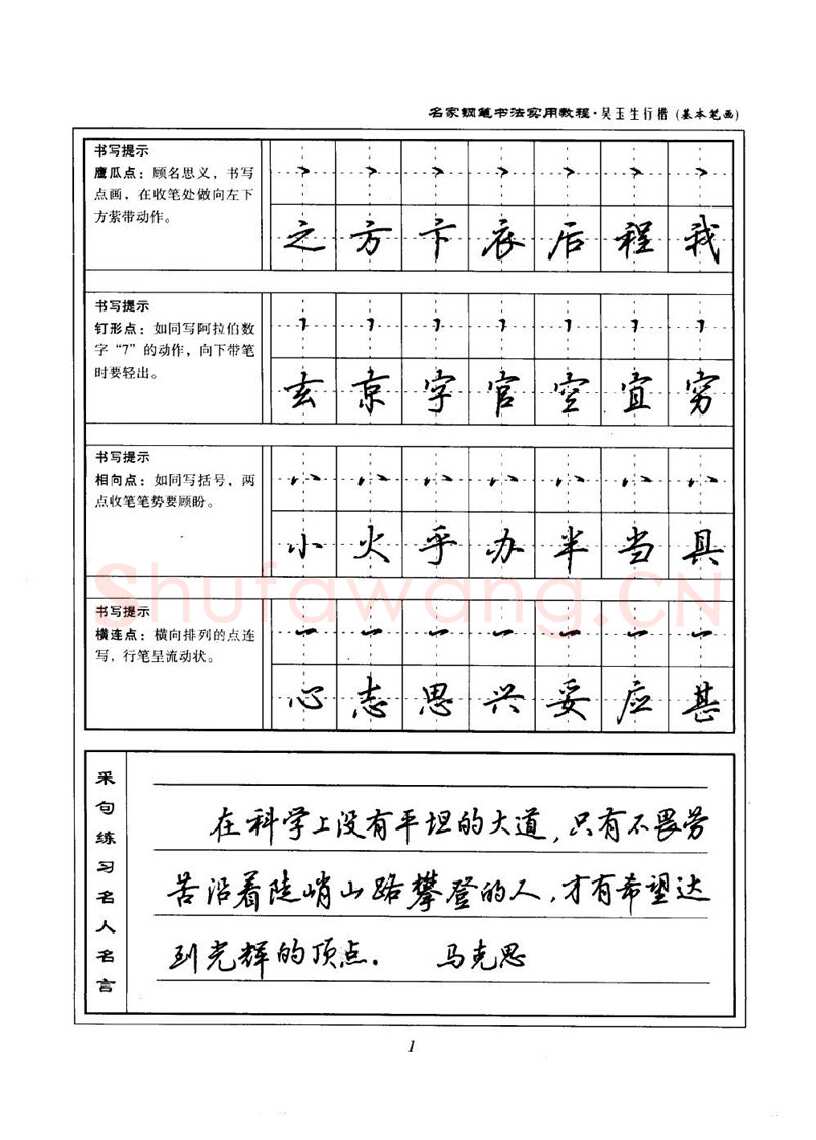 名家钢笔书法实用教程·吴玉生行楷(基本笔画)
书写提示
鹰瓜点：顾名思义，书写
点画，在收笔处做向左下
方萦带动作。
之方卞衣后程我
书写提示
钉形点：如同写阿拉伯数
字“7”的动作，向下带笔
时要轻出。
玄京字官空宜穷
书写提示
相向点：如同写括号，两
点收笔笔势要顾盼。
小火乎办半当具
书写提示
横连点：横向排列的点连
写，行笔呈流动状。
心志思兴妥应甚
Shufawang.CN
采句练习名人名言
在科学上没有平坦的大道，只有不畏劳
苦沿着陡峭山路攀登的人，才有希望达
到光辉的顶点． 马克思
1